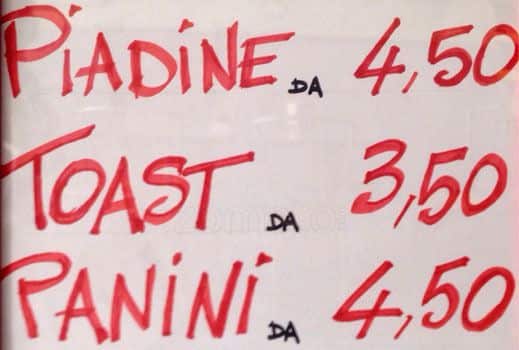 PiADiNE DA 4,50
TOAST DA 3,50
PANiNi DA 4,50